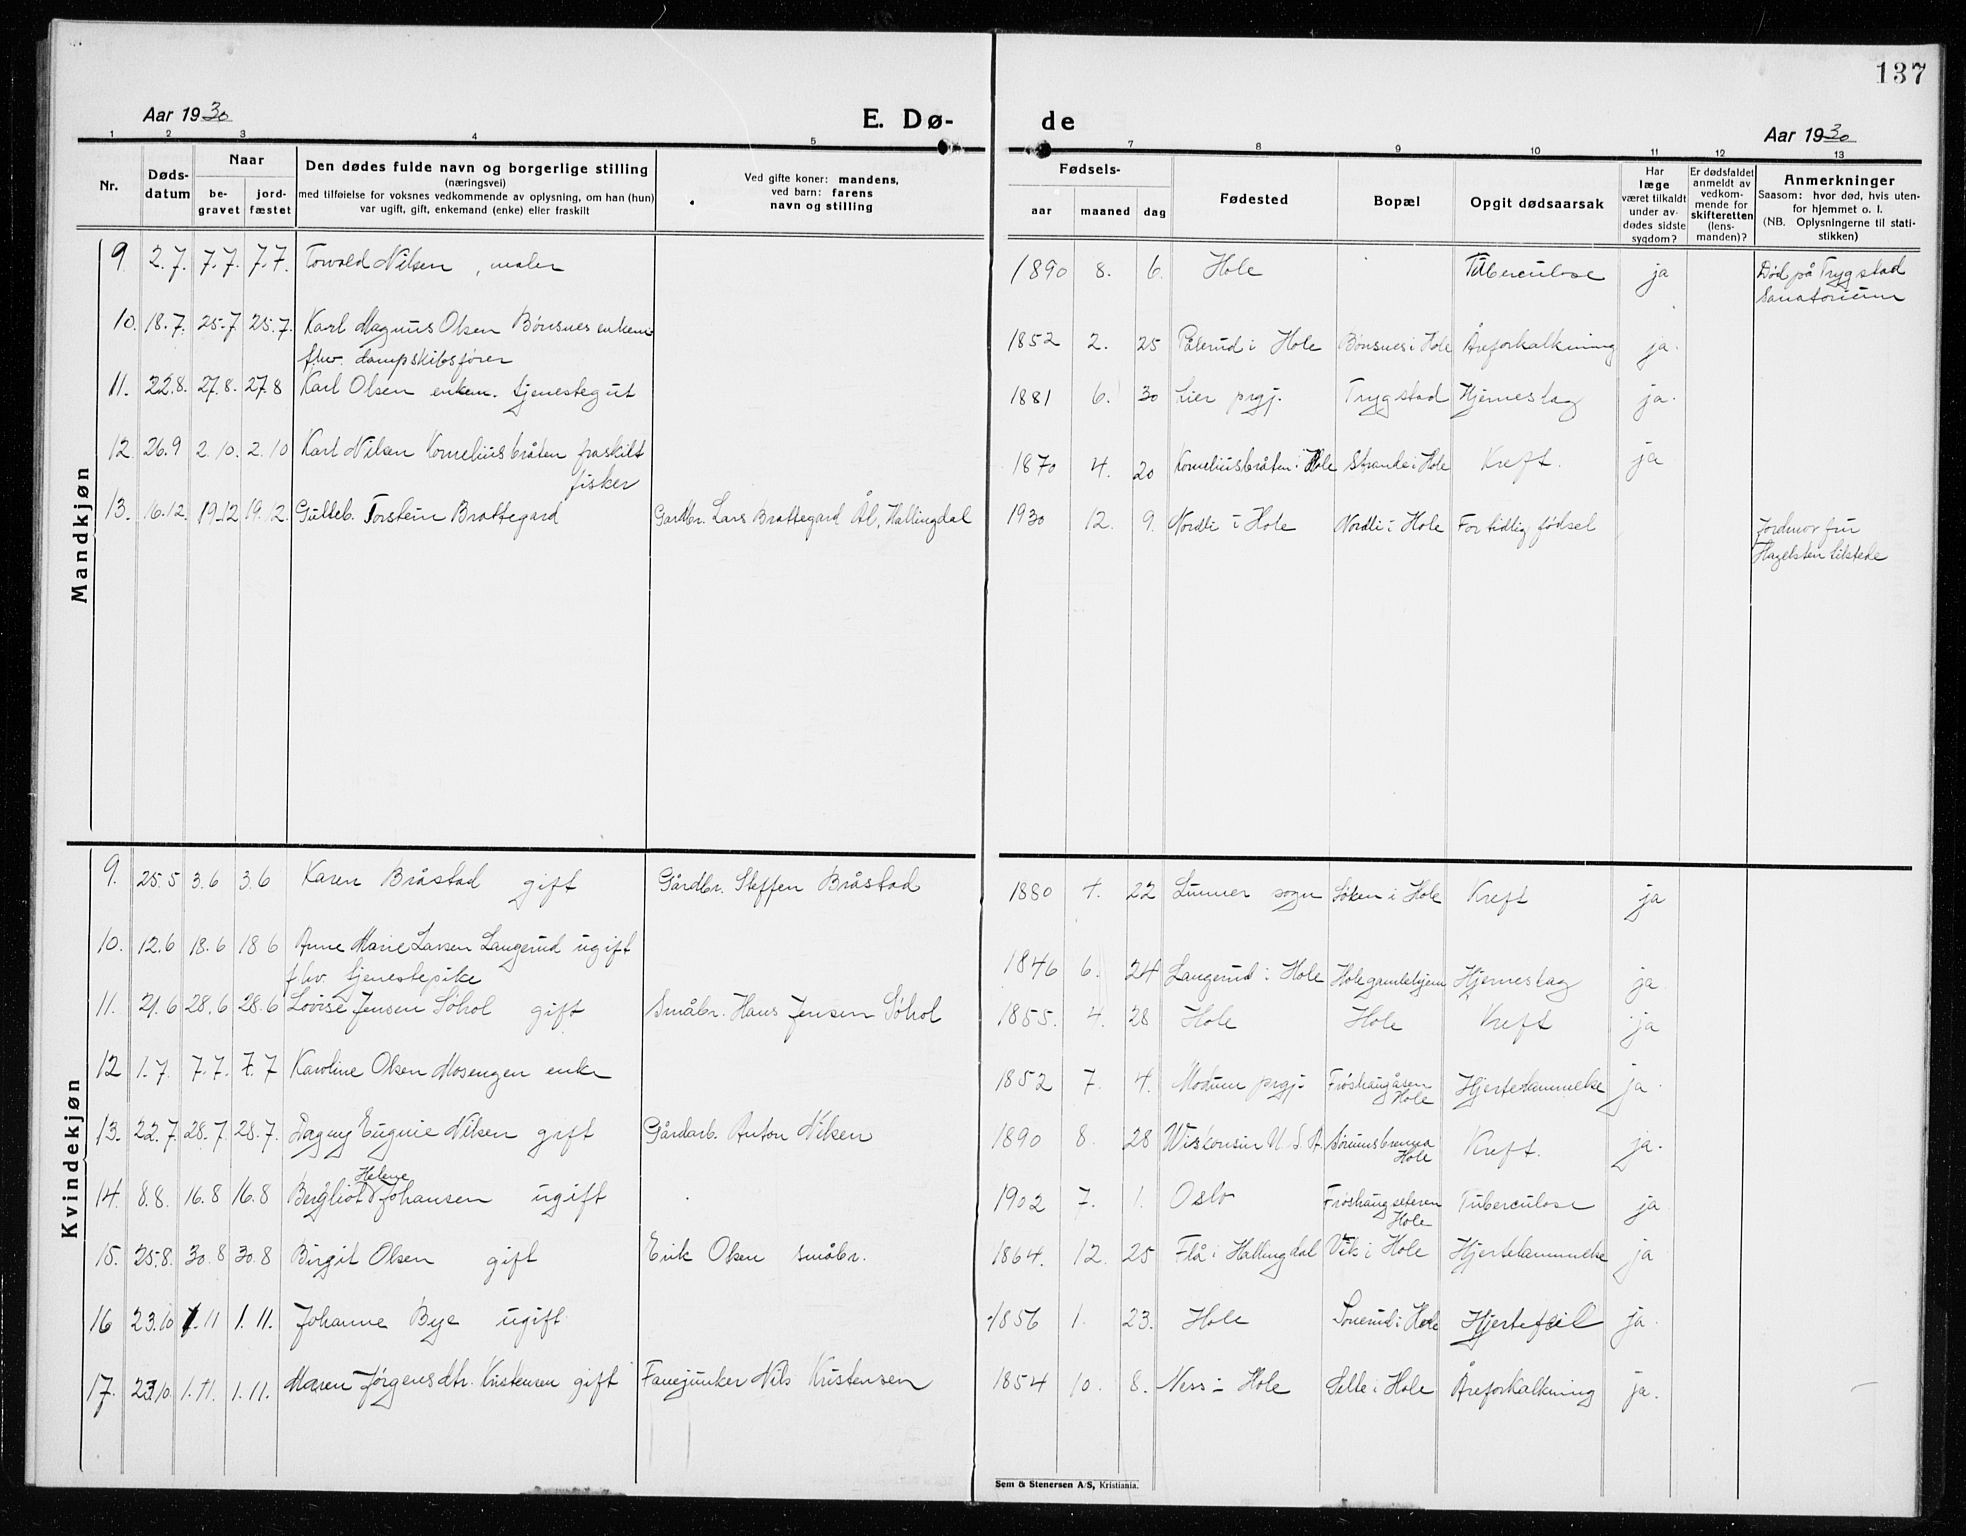 137
Aar 1930
E. Dø-
de
Aar 1930
1 2 3 4 5 7 8 9 10 11 12 13
Nr.
Døds-
datum
Naar
be-
gravet
jord-
fæstet
Den dødes fulde navn og borgerlige stilling
(næringsvei)
med tilføielse for voksnes vedkommende av oplysning, om han (hun)
var ugift, gift, enkemand (enke) eller fraskilt
Ved gifte koner: mandens,
ved barn: farens
navn og stilling
Fødsels-
aar maaned dag
Fødested
Bopæl
Opgit dødsaarsak
Har
læge
været tilkaldt
under av-
dødes sidste
sygdom?
Er dødsfaldet
anmeldt av
vedkom-
mende for
skifteretten
(lens-
manden)?
Anmerkninger
Saasom: hvor død, hvis uten-
for hjemmet o. l.
(NB. Oplysningerne til stati-
stikken)
Mandkjøn
9. 2.7. 7.7. 7.7. Torvald Nilsen, maler 1890 8. 6. Hole Tuberculose ja Død på Trygstad
Sanatorium
10. 18.7. 25.7 25.7. Karl Magnus Olsen Bønsnes enkem. 1852 2. 25 Pålerud i Hole Bønsnes i Hole Åreforkalkning ja.
fhv. dampskibsfører
11. 22.8. 27.8. 27.8 Karl Olsen enkem. tjenestegut 1881 6. 30 Lier prgj. Trygstad Hjerneslag ja.
12. 26.9 2.10. 2.10 Karl Nilsen Korneliusbråten fraskilt 1870 4. 20 Korneliusbråten i Hole Strande i Hole Kreft. ja
fisker
13. 16.12. 19.12 19.12. Gutteb. Torstein Brattegard Gardbr. Lars Brattegard Ål, Hallingdal 1930 12. 9. Nordli i Hole Nordli i Hole For tidlig fødsel Jordmor fru
Hagelsten tilstede
Kvindekjøn
9. 25.5 3.6 3.6 Karen Bråstad gift Gårdbr. Steffen Bråstad 1880 4. 22 Lunner sogn Løken i Hole Kreft ja
10. 12.6 18.6 18.6 Anne Marie Larsen Langerud ugift 1846 6. 24 Langerud i Hole Hole gamlehjem Hjerneslag ja
fhv. tjenestepike
11. 21.6 28.6 28.6 Lovise Jensen Søhol gift Småbr. Hans Jensen Søhol 1855. 4. 28 Hole Hole Kreft ja
12 1.7. 7.7. 7.7 Karoline Olsen Mosengen enke 1852 7. 4. Modum prgj. Frøshaugåsen
Hole Hjertelammelse ja.
13. 22.7. 28.7. 28.7. Dagny Eugnie Nilsen gift Gårdarb. Anton Nilsen 1890 8. 28 Wiskonsin U.S.A. Sørumsbrenna
Hole Kreft. ja.
14. 8.8. 16.8 16.8 Bergliot Helene Johansen ugift 1902 7. 1. Oslo Frøshaugseteren
Hole Tuberculose ja
15. 25.8. 30.8 30.8 Birgit Olsen gift Erik Olsen småbr. 1864. 12. 25 Flå i Hallingdal Vik i Hole Hjertelammelse ja
16 23.10 1.11 1.11. Johanne Bye ugift 1856 1. 23. Hole Lønerud i Hole Hjertefeil ja.
17. 23.10. 1.11. 1.11. Maren Jørgensdtr. Kristensen gift Fanejunker Nils Kristensen 1854 10. 8. Ness i Hole Selle i Hole Åreforkalkning ja.
Sem & Stenersen A/S, Kristiania.